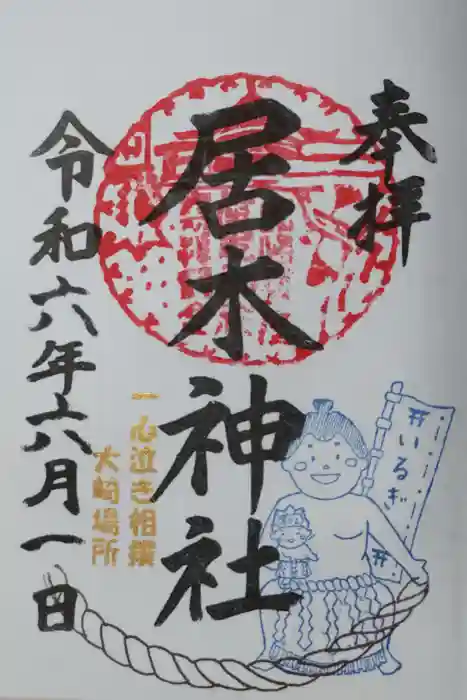 奉拝
居木神社
令和六年六月一日
一心泣き相撲
大崎場所
井いるぎ
井